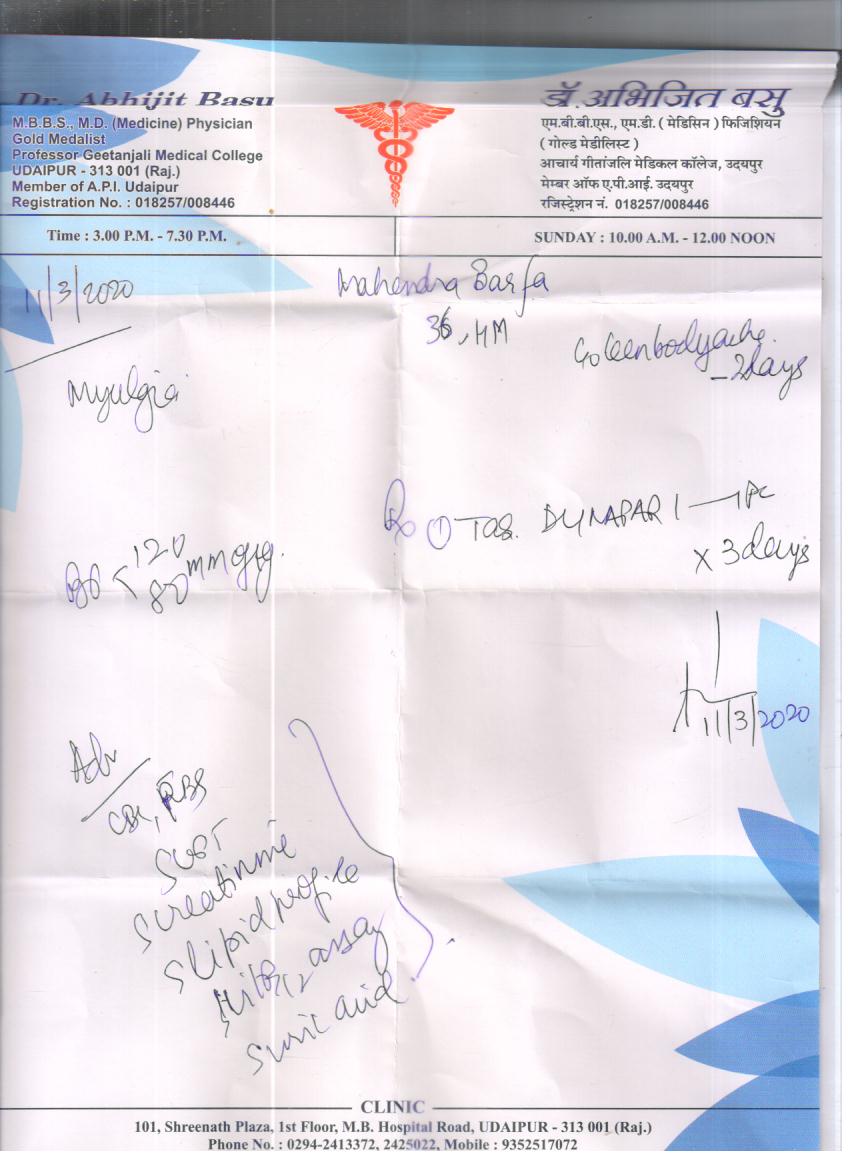 Dr. Abhijit Basu
M.B.B.S., M.D. (Medicine) Physician
Gold Medalist
Professor Geetanjali Medical College
UDAIPUR - 313 001 (Raj.)
Member of A.P.I. Udaipur
Registration No. : 018257/008446
डॉ. अभिजित बसु
एम.बी.बी.एस., एम.डी. ( मेडिसिन ) फिजिशियन
( गोल्ड मेडीलिस्ट )
आचार्य गीतांजलि मेडिकल कॉलेज, उदयपुर
मेम्बर ऑफ ए.पी.आई. उदयपुर
रजिस्ट्रेशन नं. 018257/008446
Time : 3.00 P.M. - 7.30 P.M.
SUNDAY : 10.00 A.M. - 12.00 NOON
11/3/2020
Mahendra Barfa
36, HM
bodyache
- 2days
Myalgia
Rx ① Tab. DYNAPAR 1
x 3 days
120
80 mmHg.
11/3/2020
Adv
CBC, RBS
SGPT
S creatinine
S lipid profile
assay
S uric acid
CLINIC
101, Shreenath Plaza, 1st Floor, M.B. Hospital Road, UDAIPUR - 313 001 (Raj.)
Phone No. : 0294-2413372, 2425022, Mobile : 9352517072